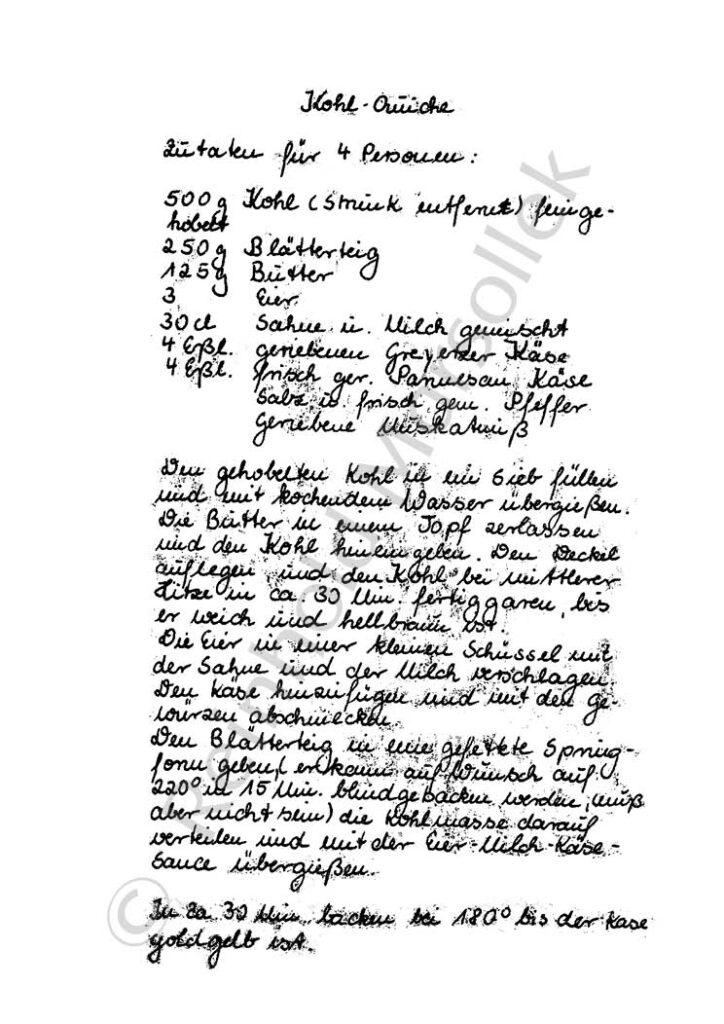 Kohl-Quiche
Zutaten für 4 Personen:
500g Kohl (Strunk entfernt) feinge-
hobelt
250g Blätterteig
125g Butter
3 Eier
30 cl Sahne u. Milch gemischt
4 Eßl. geriebenen Greyerzer Käse
4 Eßl. frisch ger. Parmesan Käse
Salz u. frisch gem. Pfeffer
Geriebene Muskatnuß
Den gehobelten Kohl in ein Sieb füllen
und mit kochendem Wasser übergießen.
Die Butter in einem Topf zerlassen
und den Kohl hineingeben. Den Deckel
auflegen und den Kohl bei mittlerer
Hitze in ca. 30 Min. fertiggaren, bis
er weich und hellbraun ist.
Die Eier in einer kleinen Schüssel mit
der Sahne und der Milch verschlagen.
Den Käse hinzufügen und mit den Ge-
würzen abschmecken.
Den Blätterteig in eine gefettete Spring-
form geben, (er kann auf Wunsch auf
220° in 15 Min. blindgebacken werden, muß
aber nicht sein) die Kohlmasse darauf
verteilen und mit der Eier-Milch-Käse-
Sauce übergießen.
In ca 30 Min. backen bei 180° bis der Käse
goldgelb ist.
© Reinhold Mirsollek